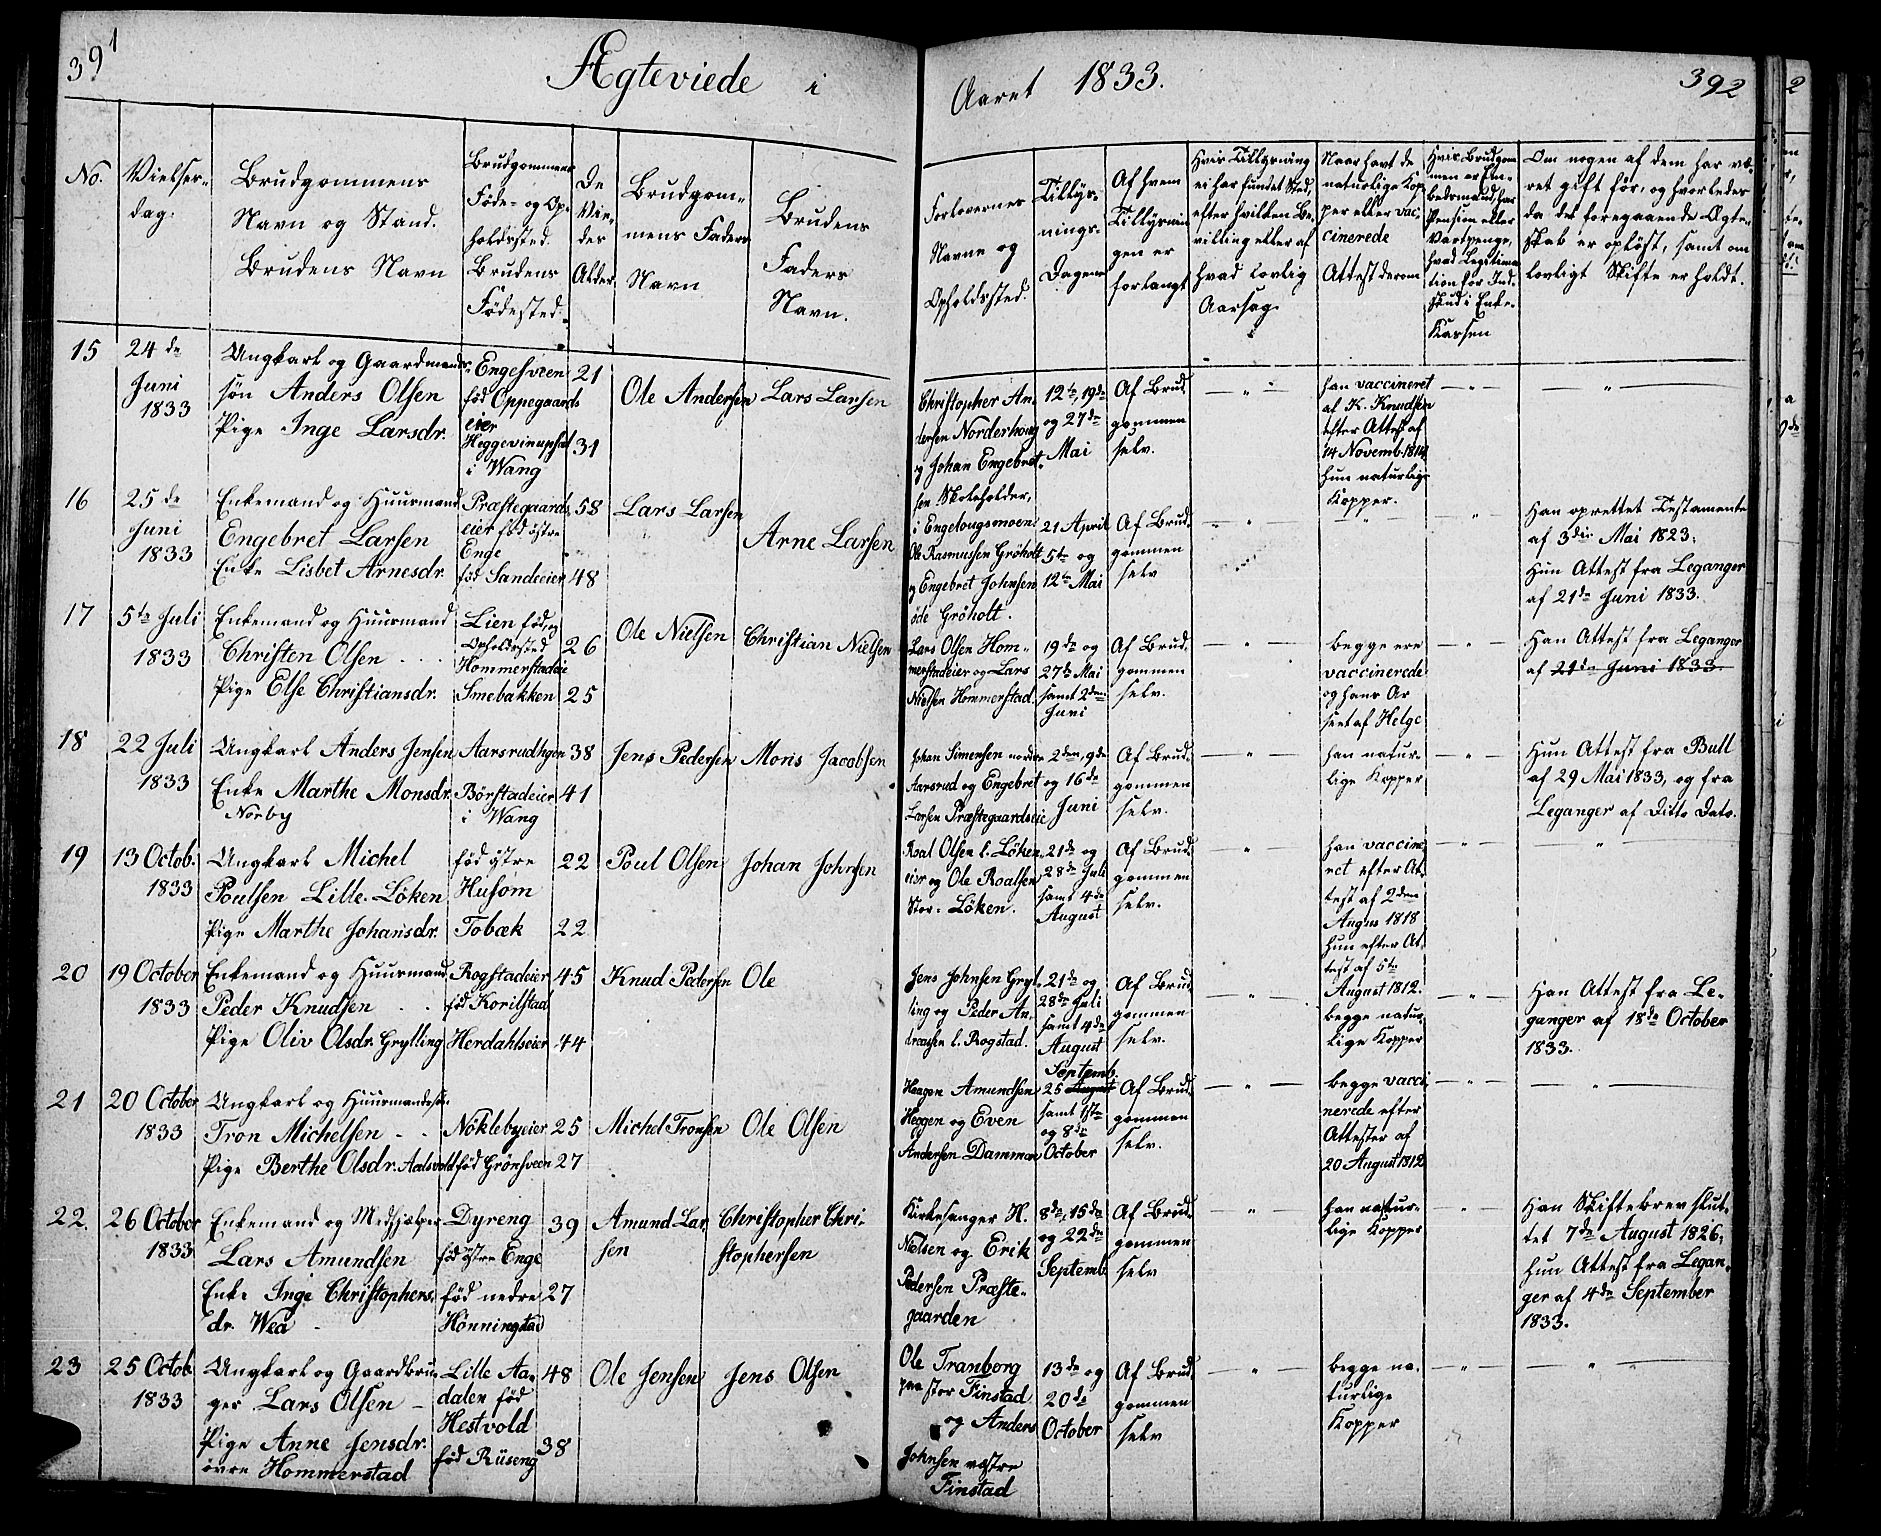 391
Ægteviede i
Aaret 1833.
392
No.
Vielses-
dag.
Brudgommens
Navn og Stand.
Brudens Navn
Brudgommens
Føde- og Op-
holdssted.
Brudens
Fødested.
De
Vie-
des
Alder
Brudgom-
mens Faders
Navn
Brudens
Faders
Navn.
Forlovernes
Navne og
Opholdssted.
Tillys-
nings-
Dagene
Af hvem
Tillysnin-
gen er
forlangt
Hvis Tillysning
ei har fundet Sted,
efter hvilken Be-
villing eller af
hvad lovlig
Aarsag.
Naar havt de
naturlige Kop-
per eller vac-
cinerede
Attest derom
Hvis Brudgom
men er Em-
bedsmand, har
Pension eller
Vartpenge,
hvad Legitima
tion for Ind-
skud i Enke-
Kassen
Om nogen af dem har væ-
ret gift før, og hvorledes
da det foregaaende Ægte-
skab er opløst, samt om
lovligt Skifte er holdt.
15
24 de
Juni
1833
Ungkarl og Gaardmands-
søn Anders Olsen
Pige Inge Larsdr.
Engesveen
fød Oppegaards
eier
Heggevinupsal
i Wang
21
31
Ole Andersen
Lars Larsen
Christopher An-
dersen Norderhoug
og Johan Engebret-
sen Skoleholder,
i Engelougsmoen
12te, 19de
og 27de
Mai
Af Brud
gommen
selv.
han vaccineret
af K. Knudsen
efter Attest af
14 Novemb. 1814
hun naturlige
Kopper.
16
25 de
Juni
1833
Enkemand og Huusmand
Engebret Larsen
Enke Lisbet Arnesdr.
Præstegaards
eier fød østre
Enge
fød Sandeeier
58
48
Lars Larsen
Arne Larsen
Ole Rasmussen Grøholt
og Engebret Johnsen
øde Grøholt.
21 April
5te og
12te Mai
Af Brud-
gommen
selv
Han oprettet Testamente
af 3die Mai 1823;
Hun Attest fra Leganger
af 21de Juni 1833.
17
5te Juli
1833
Enkemand og Huusmand
Christen Olsen
Pige Else Christiansdr.
Lien fød, og
Opholdssted
Hommerstadeie
Smebakken
26
25
Ole Nielsen
Christian Nielsen
Lars Olsen Hom-
merstadeier og Lars
Nielsen Hommerstad.
19de og
27de Mai
samt 2den
Juni
Af Brud-
gommen
selv.
begge ere
vaccinerede
og hans Ar
seet af Helge
Han Attest fra Leganger
af 21de Juni 1833.
18
22 Juli
1833
Ungkarl Anders Jensen
Enke Marthe Monsdr.
Norby
Aarsrudhgen
Børstadeier
i Wang
38
41
Jens Pedersen
Moris Jacobsen
Johan Simensen nordre
Aarsrud og Engebret
Larsen Præstegaardseie
2den, 9de
og 16de
Juni
Af Brud-
gommen
selv.
han natur-
lige Kopper
Hun Attest fra Bull
af 29 Mai 1833, og fra
Leganger af Ditto Dato.
19
13 Octob.
1833
Ungkarl Michel
Poulsen Lille-Løken
Pige Marthe Johansdr.
fød østre
Husom
Tobæk
22
22
Poul Olsen
Johan Johnsen
Roal Olsen l. Løken-
eier og Ole Roalsen
Stor-Løken.
21de og
28de Juli
samt 4de
August
Af Brud
gommen
selv.
han vaccine-
ret efter At-
test af 2den
Augus 1818
hun efter At-
test af 5te
August 1812.
20
19 October
1833
Enkemand og Huusmand
Peder Knudsen
Pige Oliv Olsdr. Grylling
Rogstadeier
fød Korilstad
Herdahlseier
45
44
Knud Pedersen
Ole
Jens Johnsen Gryl-
ling og Peder An-
dreasen l. Rogstad.
21de og
28de Juli
samt 4de
August
Af Brud
gommen
selv.
begge natur-
lige Kopper
Han Attest fra Le-
ganger af 18de October
1833.
21
20 October
1833
Ungkarl og Huusmandssøn
Tron Michelsen
Pige Berthe Olsdr. Aalsvold
Nøklebyeier
fød Grønsveen
25
27
Michel Tronsen
Ole Olsen
Haagen Amundsen
Heggen og Even
Andersen Dammen
Septemb.
25 August
samt 1ste
og 8de
October
Af Brud
gommen
selv.
begge vacci
nerede efter
Attester af
20 August 1812
22.
26 October
1833
Enkemand og Medhjælper
Lars Amundsen
Enke Inge Christophers-
dr. Wea
Dyreng
fød østre Enge
fød nedre
Hønningstad
39
27
Amund Lar-
sen
Christopher Chri-
stophersen
Kirkesanger H.
Nielsen og Erik
Pedersen Præste-
gaarden
8de, 15de
og 22de
Septemb.
Af Brud-
gommen
selv
han natur-
lige Kopper
Han Skiftebrev slut-
tet 7de August 1826;
hun Attest fra Legan-
ger af 4de September
1833.
23
25 Octob.
1833
Ungkarl og Gaardbru-
ger Lars Olsen
Pige Anne Jensdr.
øvre Hommerstad
Lille Aa-
dalen fød
Hestvold
fød Rüseng
48
38
Ole Jensen
Jens Olsen
Ole Tranborg
paa stor Finstad
og Anders
Johnsen vestre
Finstad
13de og
20de
October
Af Brud
gommen
selv
begge na-
turlige
Kopper